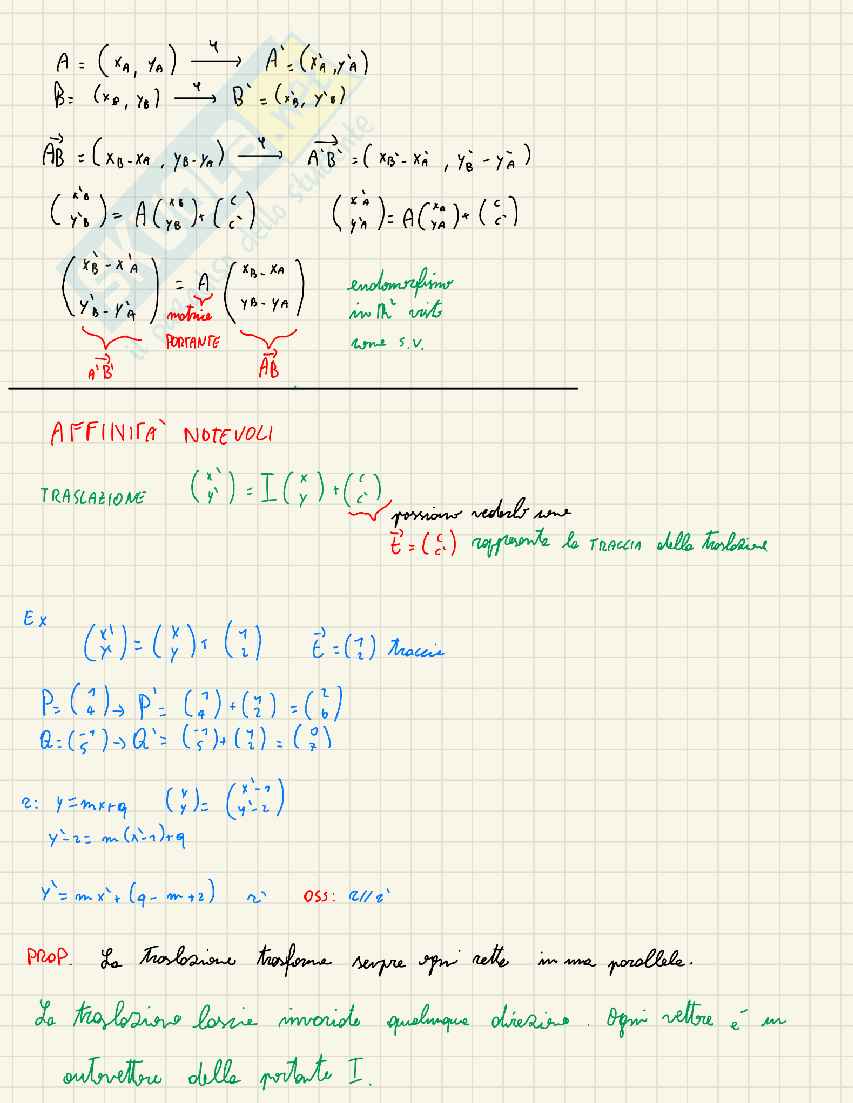 A = (x_A, y_A) —φ→ A' = (x'_A, y'_A)
B = (x_B, y_B) —φ→ B' = (x'_B, y'_B)
AB⃗ = (x_B - x_A, y_B - y_A) —φ→ A'B'⃗ = (x'_B - x'_A, y'_B - y'_A)
(x'_B y'_B) = A (x_B y_B) + (c c')    (x'_A y'_A) = A (x_A y_A) + (c c')
(x'_B - x'_A y'_B - y'_A) = A (x_B - x_A y_B - y_A)
endomorfismo
in R² visto
come S.V.
matrice
PORTANTE
A'B'⃗    AB⃗
AFFINITA' NOTEVOLI
TRASLAZIONE (x' y') = I (x y) + (c c')
possiamo vederlo come
t⃗ = (c c') rappresenta la TRACCIA della traslazione
Ex
(x' y') = (x y) + (1 2)    t⃗ = (1 2) traccia
P = (1 4) → P' = (1 4) + (1 2) = (2 6)
Q = (-1 5) → Q' = (-1 5) + (1 2) = (0 7)
r: y = mx+q    (x y) = (x'-1 y'-2)
y'-2 = m(x'-1)+q
y' = mx' + (q - m + 2)    r'    OSS: r // r'
PROP. La traslazione trasforma sempre ogni retta in una parallela.
La traslazione lascia invariata qualunque direzione. Ogni vettore è un
autovettore della portante I.
SKUOLA.net
il paradiso dello studente